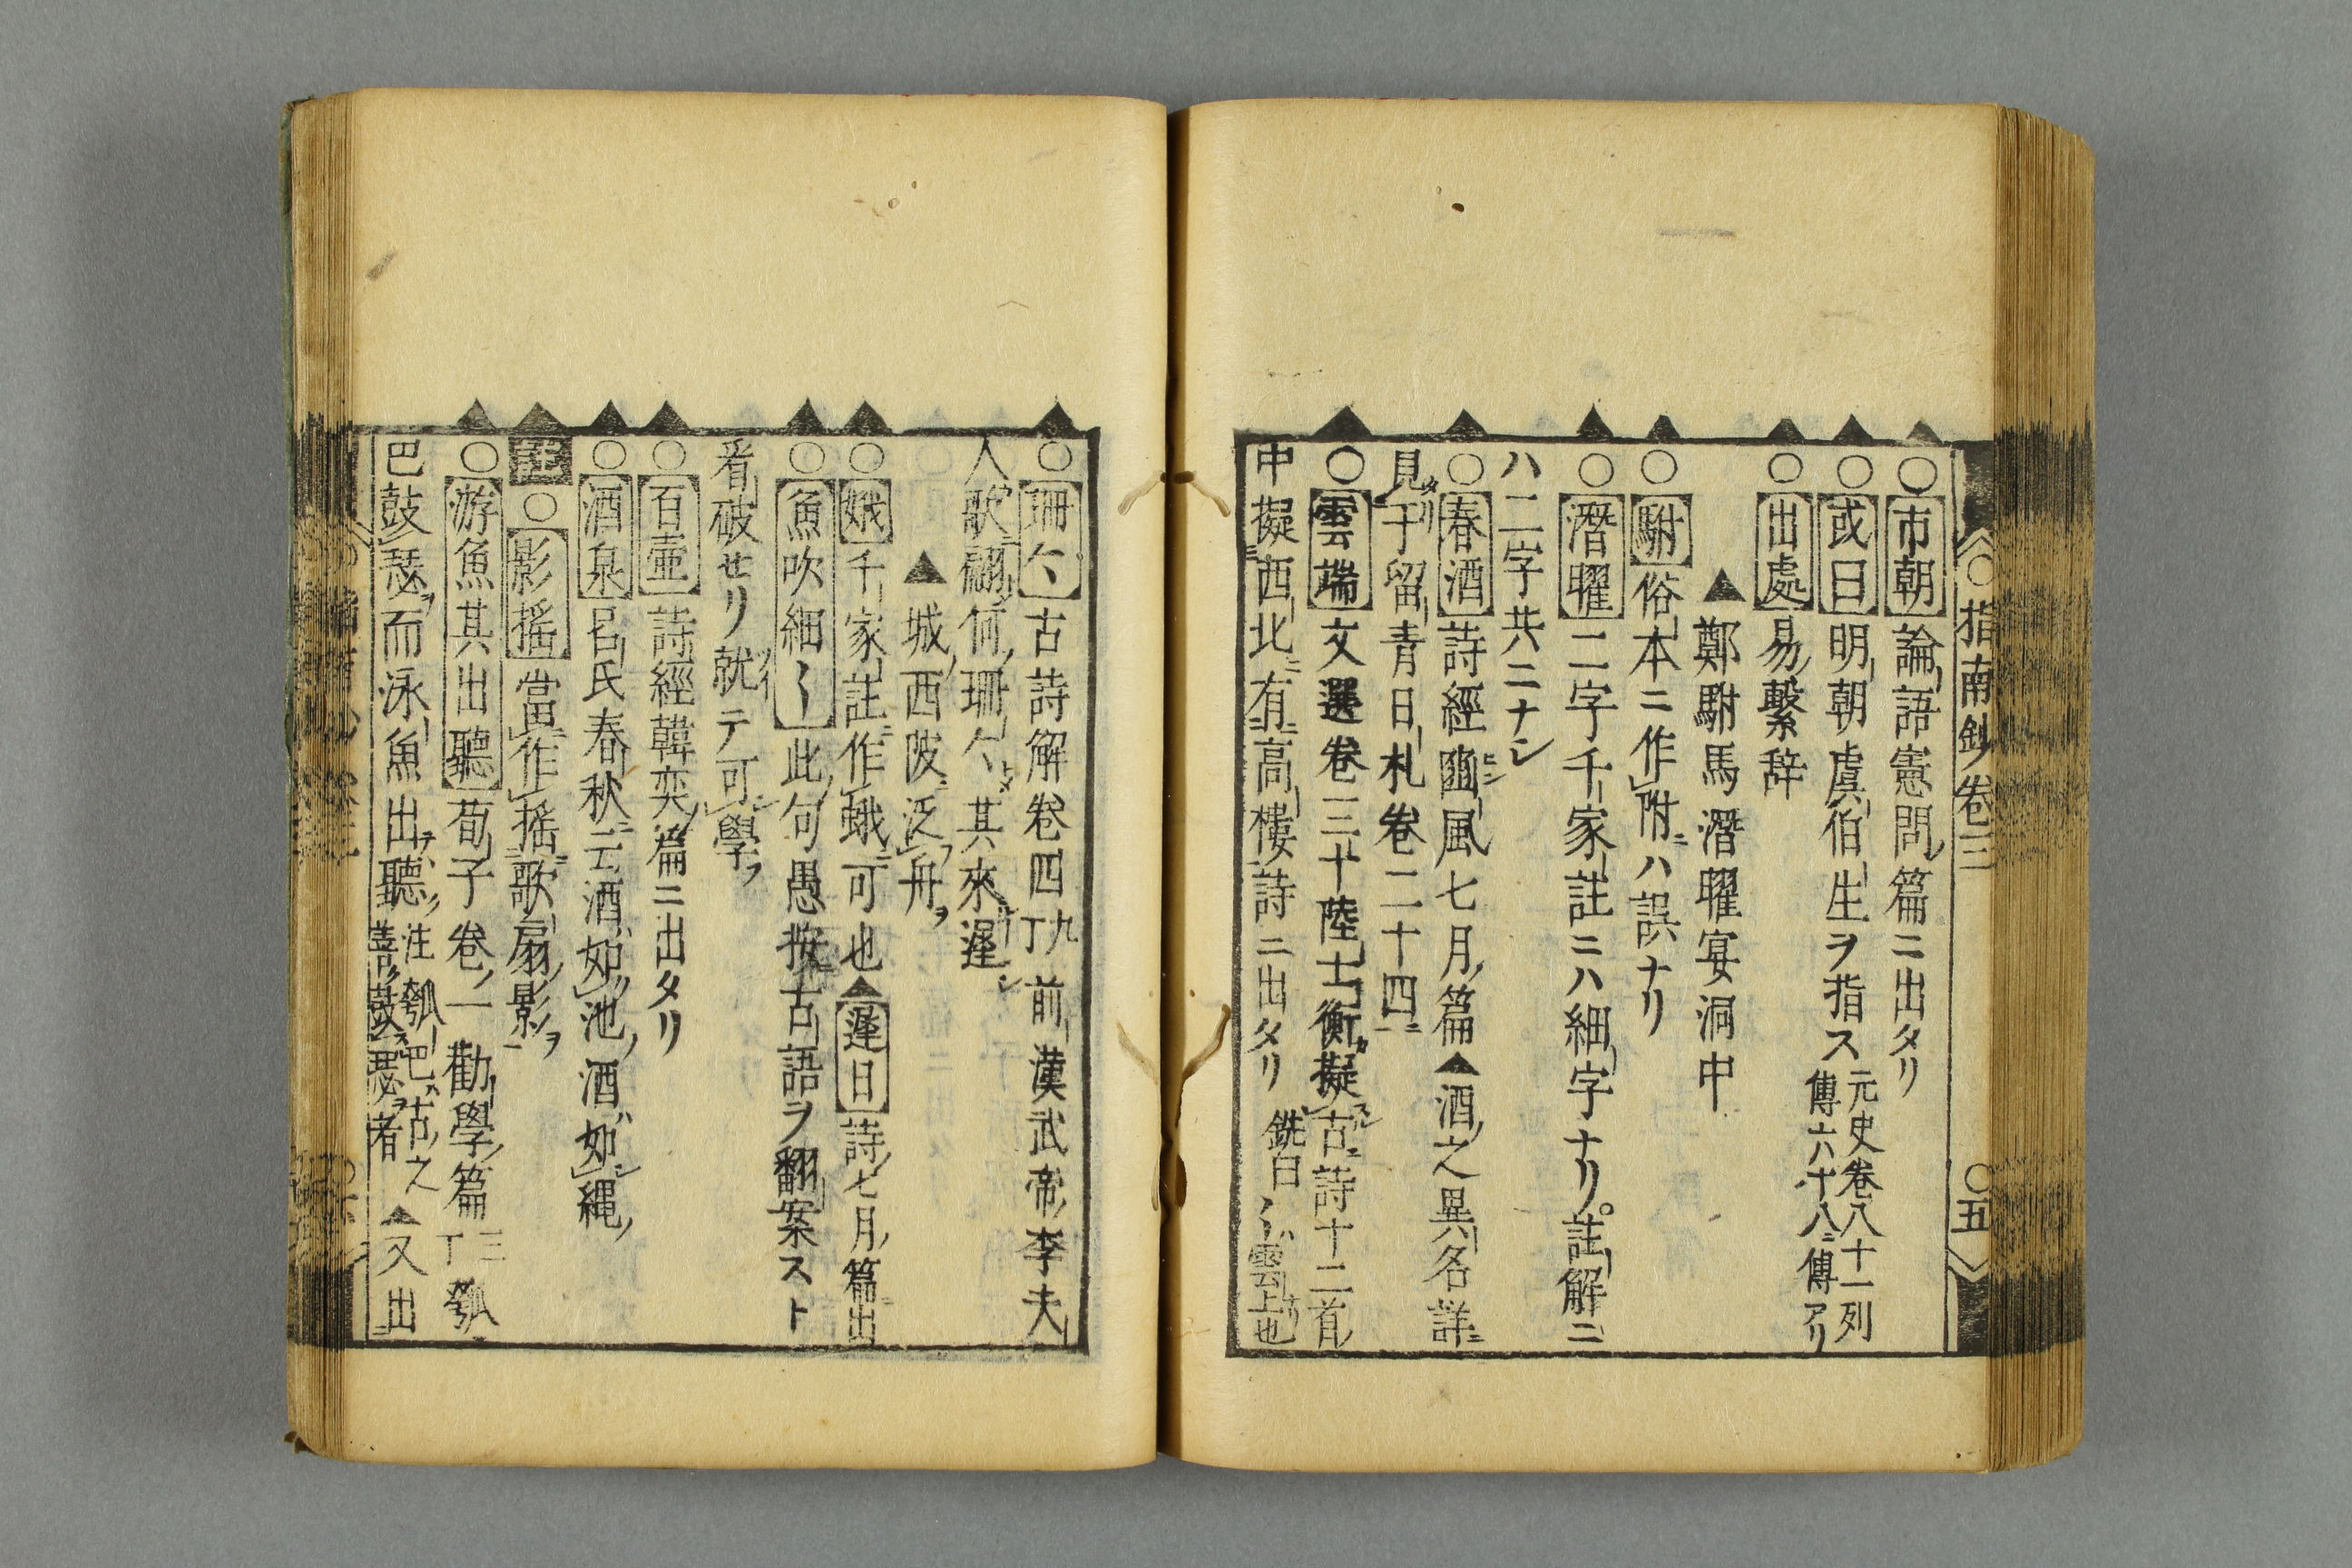 ○指南鈔卷三 ○五
○市朝論語憲問ノ篇ニ出タリ
○或曰明朝虞伯生ヲ指ス元史卷八十一列傳六十八ニ傳アリ
○出處易ノ繫辞
▲鄭駙馬潛曜宴洞中
○駙俗本ニ作附ニハ誤ナリ
○潛曜二字千家註ニハ細字ナリ。註解ニ
ハ二字共ニナシ
○春酒詩經豳風七月ノ篇▲酒ノ之異名詳ニ
見タリ于留青日札卷二十四ニ
○雲端文選卷三十陸士衡カ擬スル古ニ詩十二首ノ
中擬ニ西北ニ有ニ高樓詩ニ出タリ銑曰〱ハ雲上也
○珊〱古詩解卷四九丁前漢武帝ノ李夫
人歌ニ翩何ノ珊〱トシテ其來遲シ
▲城西陂泛フ舟ヲ
○娥千家註ニ作蛾ニ可也▲遲日詩ノ七月ノ篇出
○魚吹細〱此ノ句愚按古語ヲ翻案スト
看破セリ就テ可シ學フ
○百壷詩經韓奕ノ篇ニ出タリ
○酒泉呂氏春秋ニ云酒ハ如ノ池ノ酒ハ如シ縄ノ
註○影搖當ニ作搖ニ歌扇ノ影ヲ
○游魚其出聽荀子卷ノ一勸學ノ篇三丁瓠
巴鼓瑟ヲ而泳魚出テ聽ク注瓠巴ハ古ノ之善ク鼓スル瑟ヲ者▲又出